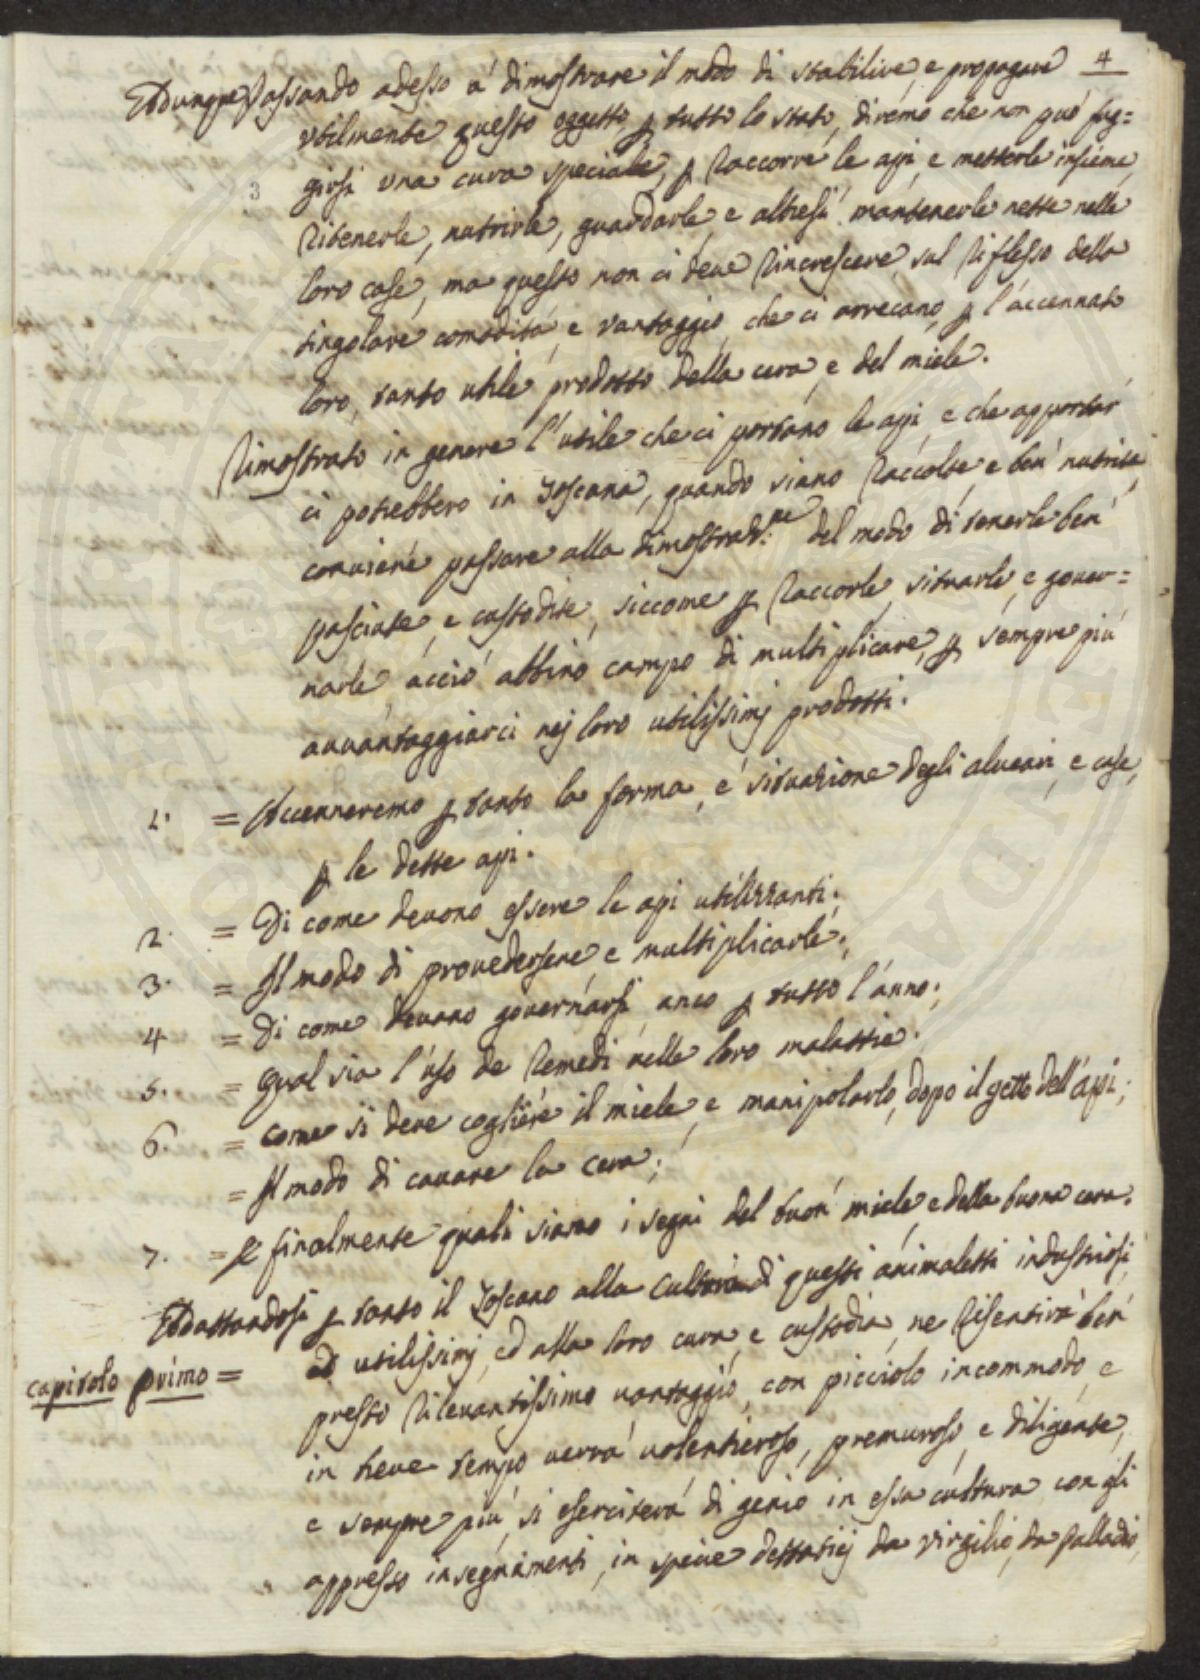 4
Ed dunque Passando adesso á dimostrare il modo di stabilire e propagare
utilmente questo oggetto p tutto lo stato, diremo che non può fug=
girsi una cura speciale, p Raccorre le api, e metterle insieme,
3
Ritenerle, nutrirle, guardarle, e altresì mantenerle nette nelle
loro case, ma questo non ci deve Rincrescere, sul Riflesso della
singolare comodità, e vantaggio, che ci arrecano, p l'accennato
loro, tanto utile prodotto della cera, e del miele.
Rimostrato in genere l'utile che ci portano le api e che apportar
ci potrebbero in Toscana, quando siano Raccolte, e ben nutrite,
conviene passare alla dimostraz:ne del modo di tenerle ben
pasciute, e custodite, siccome p Raccorle, situarle, e gover=
narle, acciò abbino campo di multiplicare, p sempre più
avvantaggiarci nej loro utilissimj prodotti.
1. = Accenneremo p tanto la forma, e situazione degli alveari, e case,
p le dette api.
2. = Di come devono essere le api utilizzanti;
3. = Il modo di provedersene e multiplicarle;
4 = Di come devano governarsi anco p tutto l'anno;
5. = Qual sia l'uso de Remedi nelle loro malattie.
6. = Come si deve cogliere il miele, e manipolarlo, dopo il getto dell'api;
= Il modo di cavare la cera;
7. = E finalmente quali siano i segni del buon miele e della buona cera.
Eddattandosi p tanto il Toscano alla cultura di questi animaletti industriosi,
capitolo primo =
ed utilissimj, ed alla loro cura, e custodia, ne Risentirà ben
presto Rilevantissimo vantaggio, con picciolo incommodo, e
in breve tempo verrà volentieroso, premuroso, e diligente,
e sempre più si eserciterà di genio in essa cultura con gli
appresso insegnamenti, in specie dettatici da Virgilio, da Palladio,